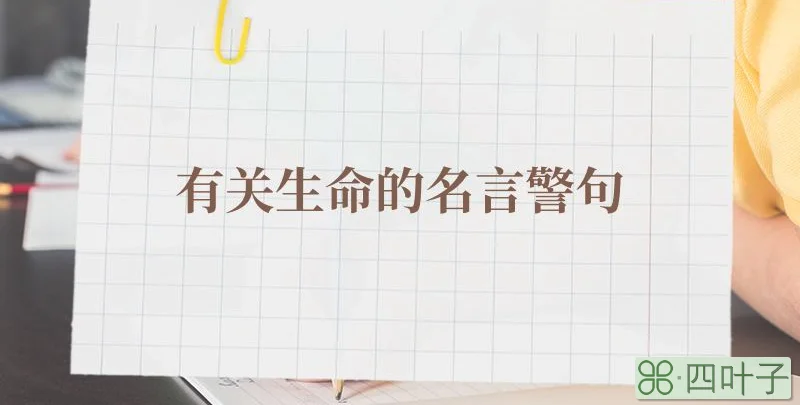 有关生命的名言警句
⌘·四叶子